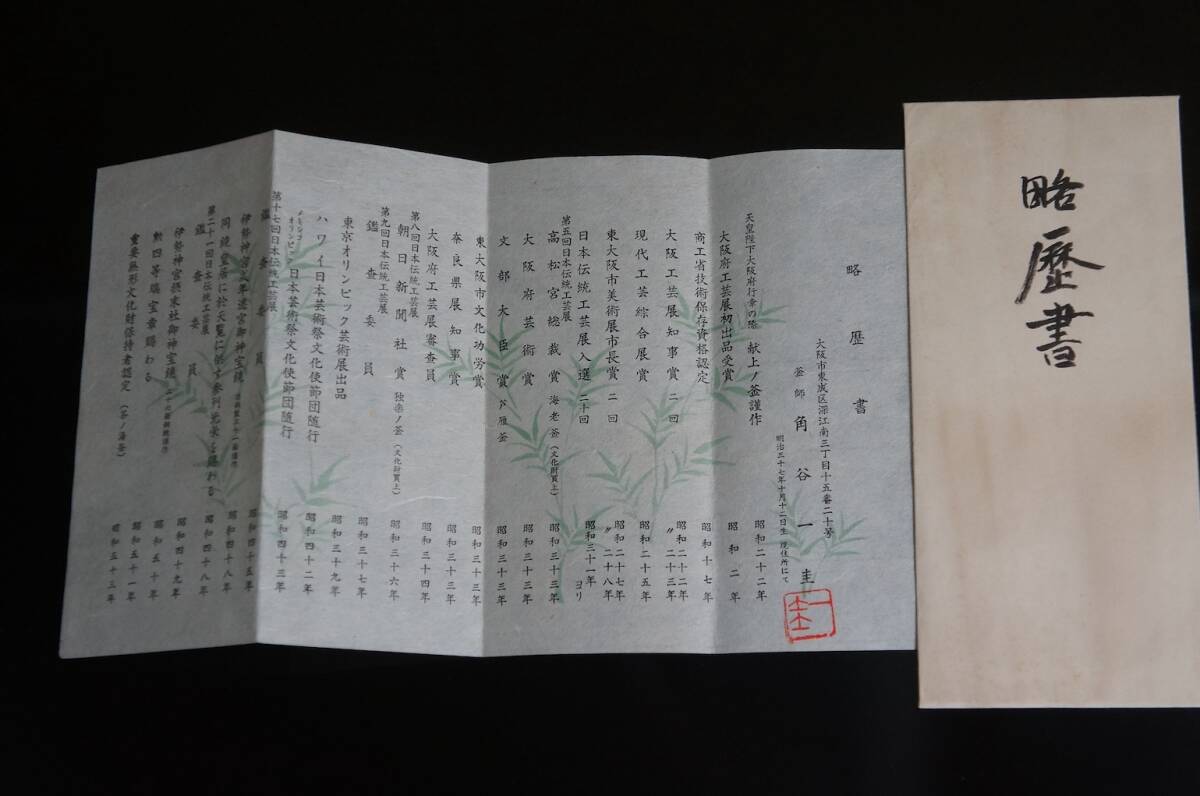 略歴書
略歴書
大阪市東成区深江南三丁目十五番二十号
釜師 角谷一圭
明治三十七年十月十二日生 現住所にて
天皇陛下大阪府行幸の際 献上ノ釜謹作 昭和二十二年
大阪府工芸展初出品受賞 昭和二年
商工省技術保存資格認定 昭和十七年
大阪工芸展知事賞 二回 昭和二十二年 〃二十三年
現代工芸綜合展賞 昭和二十五年
東大阪市美術展市長賞 二回 昭和二十七年 〃二十八年
日本伝統工芸展入選 二十回 昭和三十一年ヨリ
第五回日本伝統工芸展
高松宮総裁賞 海老釜(文化財買上) 昭和三十三年
大阪府芸術賞 昭和三十三年
文部大臣賞 芦雁釜 昭和三十三年
東大阪市文化功労賞 昭和三十三年
奈良県展知事賞 昭和三十三年
大阪府工芸展審査員 昭和三十四年
第八回日本伝統工芸展
朝日新聞社賞 独楽ノ釜(文化財買上) 昭和三十六年
第九回日本伝統工芸展
鑑査委員 昭和三十七年
東京オリンピック芸術展出品 昭和三十九年
ハワイ日本芸術祭文化使節団随行 昭和四十二年
メキシコオリンピック 日本芸術祭文化使節団随行 昭和四十三年
第十七回日本伝統工芸展
鑑査委員 昭和四十五年
伊勢神宮式年遷宮御神宝鏡 昭和四十八年
同鏡皇居に於て天覧に供す参列光栄を賜わる 昭和四十八年
第二十一回日本伝統工芸展
鑑査委員 昭和四十九年
伊勢神宮摂末社御神宝鏡 昭和五十年
勲四等瑞宝章賜わる 昭和五十一年
重要無形文化財保持者認定(茶ノ湯釜) 昭和五十三年